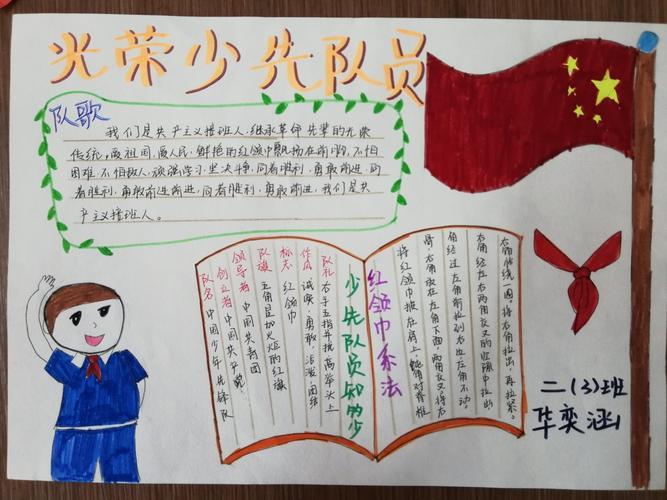 光荣少先队员
队歌
我们是共产主义接班人，继承革命先辈的光荣
传统，爱祖国，爱人民，鲜艳的红领巾飘扬在前胸，不怕
困难，不怕敌人，顽强学习，坚决斗争，向着胜利，勇敢前进，向
着胜利，勇敢前进前进，向着胜利，勇敢前进，我们是共
产主义接班人。
少先队员知的少
队礼 右手五指并拢高举头上
作风 诚实，勇敢，活泼，团结
标志 红领巾
队旗 五角星加火炬的红旗
领导者 中国共青团
创立者 中国共产党
队名 中国少年先锋队
红领巾系法
将红领巾披在肩上，钝角对脊椎
骨，右角放在左角下面，两角交叉，将右
角经过左角前拉到右边，左角不动，
右角经左右两角交叉的空隙中拉出
右角绕一圈，将右角拉出，再拉紧。
二(3)班
毕奕涵